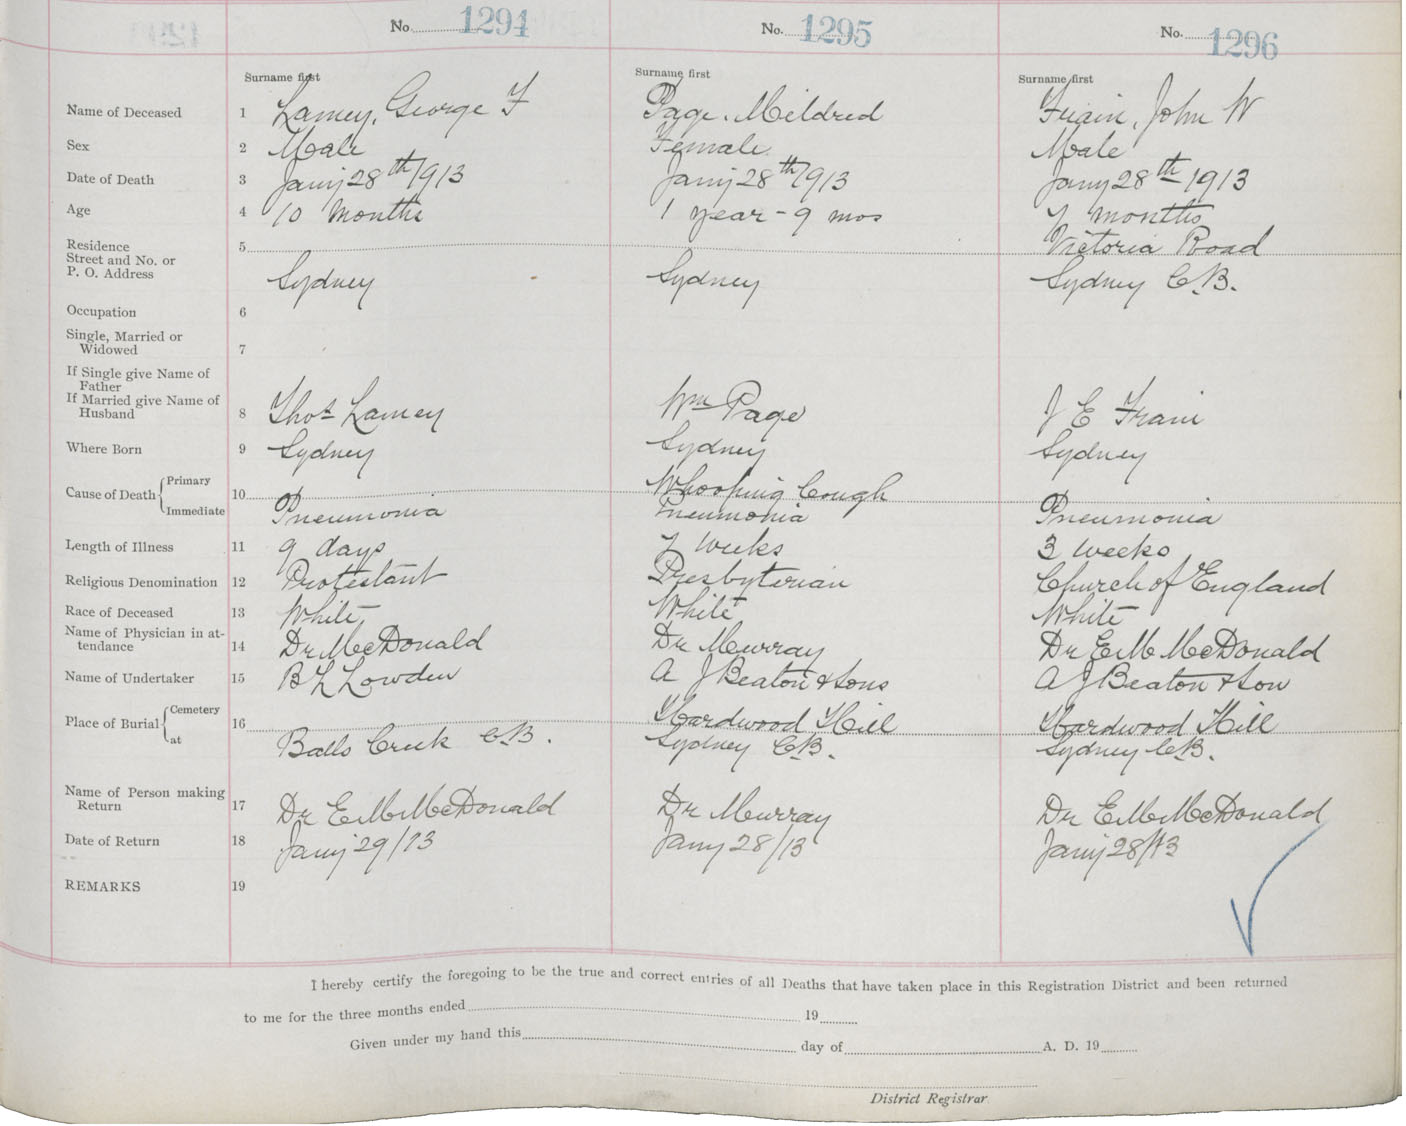 No. 1294 No. 1295 No. 1296
Surname first Surname first Surname first
Name of Deceased 1 Lamey, George F Page, Mildred Frain, John W
Sex 2 Male Female Male
Date of Death 3 Jany 28th 1913 Jany 28th 1913 Jany 28th 1913
Age 4 10 months 1 year - 9 mos 7 months
Residence 5 Victoria Road
Street and No. or
P. O. Address Sydney Sydney Sydney C.B.
Occupation 6
Single, Married or
Widowed 7
If Single give Name of
Father
If Married give Name of
Husband 8 Thos Lamey Wm Page J E Frain
Where Born 9 Sydney Sydney Sydney
Cause of Death Primary 10 Whooping Cough
Immediate Pneumonia Pneumonia Pneumonia
Length of Illness 11 9 days 7 weeks 3 weeks
Religious Denomination 12 Protestant Presbyterian Church of England
Race of Deceased 13 White White White
Name of Physician in at-
tendance 14 Dr McDonald Dr Murray Dr E M McDonald
Name of Undertaker 15 B L Lowden A J Beaton & Sons A J Beaton & Son
Place of Burial Cemetery 16 Hardwood Hill Hardwood Hill
at Balls Creek C.B. Sydney C.B. Sydney C.B.
Name of Person making
Return 17 Dr E M McDonald Dr Murray Dr E M McDonald
Date of Return 18 Jany 29/13 Jany 28/13 Jany 28/13
REMARKS 19
I hereby certify the foregoing to be the true and correct entries of all Deaths that have taken place in this Registration District and been returned
to me for the three months ended 19
Given under my hand this day of A. D. 19
District Registrar.